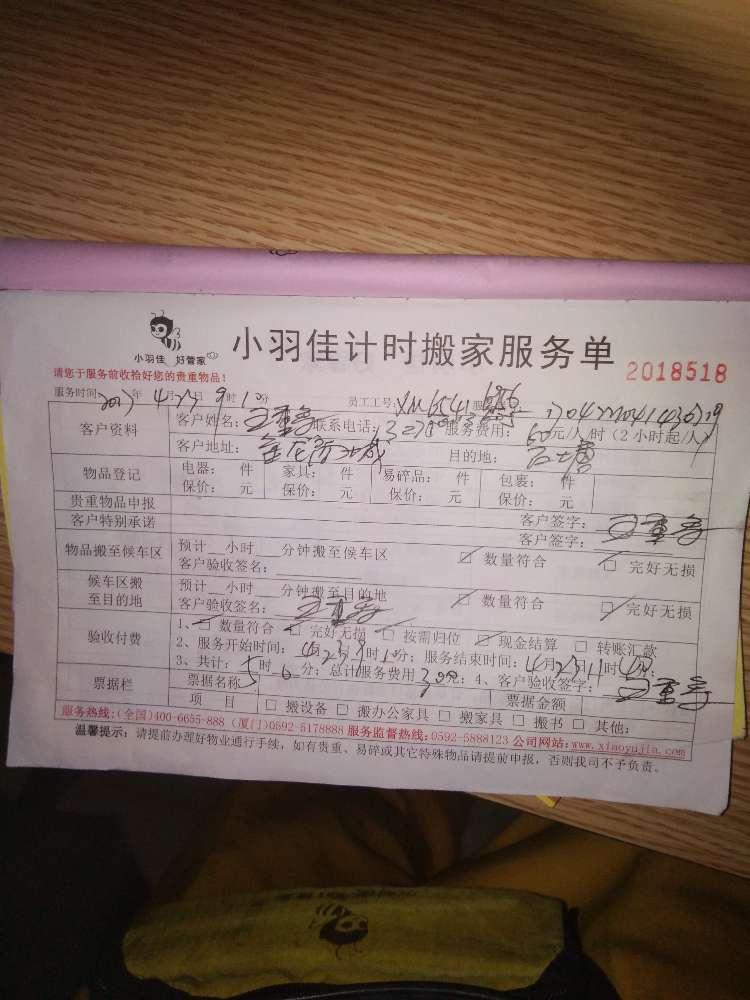 小羽佳 好管家
小羽佳计时搬家服务单
2018518
请您于服务前收检好您的贵重物品!
服务时间:2017年4月23日9时10分 员工工号:XM6541
客户资料 客户姓名: 联系电话: 服务费用:60元/人/时(2小时起/人)
客户地址: 目的地:
物品登记 电器: 件 家具: 件 易碎品: 件 包裹: 件
保价: 元 保价: 元 保价: 元 保价: 元
贵重物品申报 客户签字:
客户特别承诺 客户签字:
物品搬至候车区 预计 小时 分钟搬至候车区 数量符合 完好无损
客户验收签名:
候车区搬至目的地 预计 小时 分钟搬至目的地 数量符合 完好无损
客户验收签名:
验收付费 1、数量符合 完好无损 按需归位 现金结算 转账汇款
2、服务开始时间:4月23日9时10分;服务结束时间:4月23日11时 分;
3、共计:5时0分;总计服务费用300元;4、客户验收签字:
票据栏 票据名称 票据金额
项 目 搬设备 搬办公家具 搬家具 搬书 其他:
服务热线:(全国)400-6655-888 (厦门)0592-5178888 服务监督热线:0592-5888123 公司网站:www.xiaoyujia.com
温馨提示:请提前办理好物业通行手续,如有贵重、易碎或其它特殊物品请提前申报,否则我司不予负责。